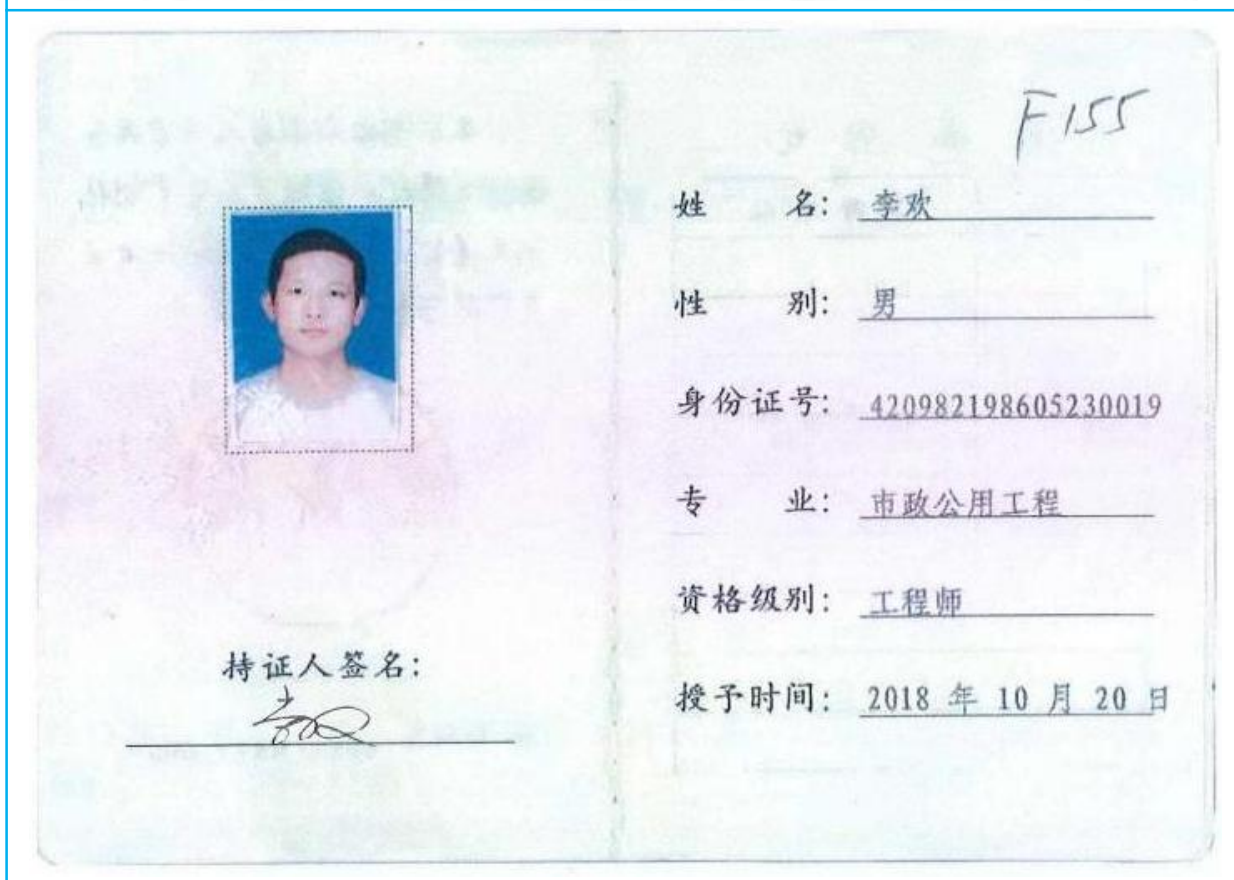 F155
姓 名: 李欢
性 别: 男
身份证号: 420982198605230019
专 业: 市政公用工程
资格级别: 工程师
授予时间: 2018 年 10 月 20 日
持证人签名: